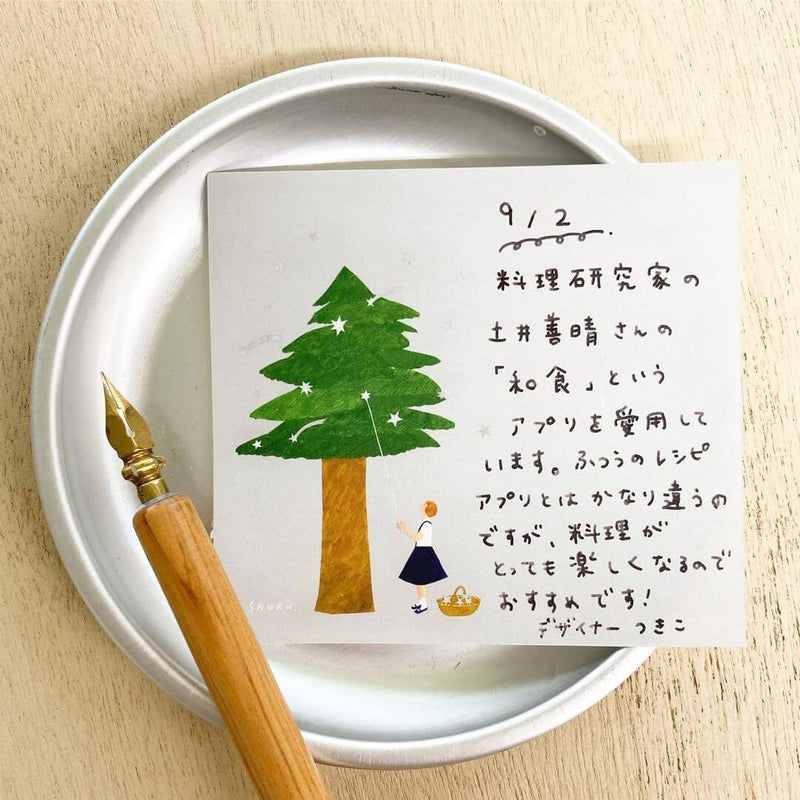 9/2.
料理研究家の
土井善晴さんの
「和食」という
アプリを愛用して
います。ふつうのレシピ
アプリとはかなり違うの
ですが、料理が
とっても楽しくなるので
おすすめです!
デザイナー つきこ
Shuku.